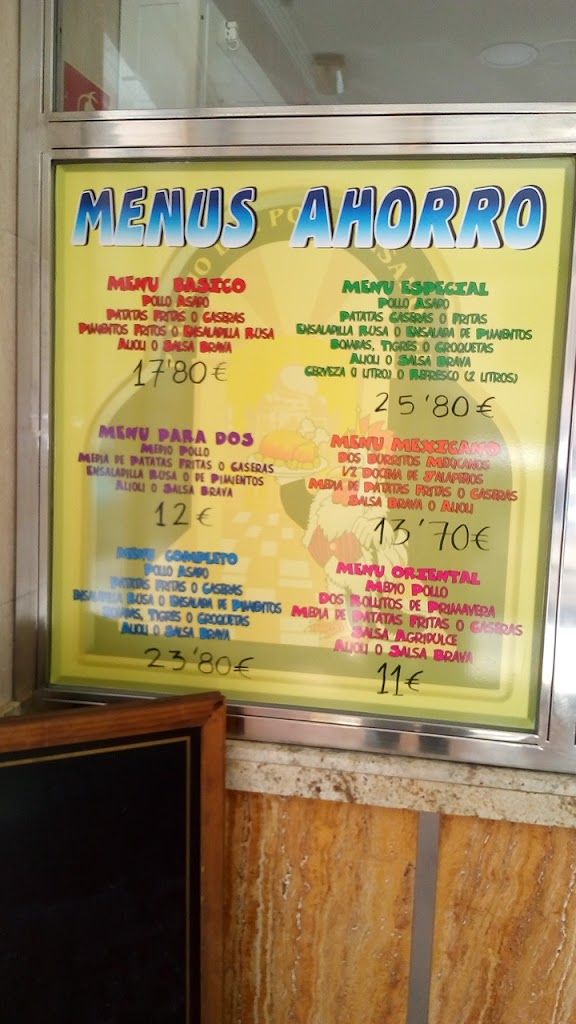 MENUS AHORRO
MENU BASICO
POLLO ASADO
PATATAS FRITAS O CASERAS
PIMIENTOS FRITOS O ENSALADILLA RUSA
ALIOLI O SALSA BRAVA
17'80€
MENU PARA DOS
MEDIO POLLO
MEDIA DE PATATAS FRITAS O CASERAS
ENSALADILLA RUSA O DE PIMIENTOS
ALIOLI O SALSA BRAVA
12€
MENU COMPLETO
POLLO ASADO
PATATAS FRITAS O CASERAS
ENSALADILLA RUSA O ENSALADA DE PIMIENTOS
BOMBAS, TIGRES O CROQUETAS
ALIOLI O SALSA BRAVA
23'80€
MENU ESPECIAL
POLLO ASADO
PATATAS CASERAS O FRITAS
ENSALADILLA RUSA O ENSALADA DE PIMIENTOS
BOMBAS, TIGRES O CROQUETAS
ALIOLI O SALSA BRAVA
CERVEZA (1 LITRO) O REFRESCO (2 LITROS)
25'80€
MENU MEXICANO
DOS BURRITOS MEXICANOS
1/2 DOCENA DE JALAPEÑOS
MEDIA DE PATATAS FRITAS O CASERAS
SALSA BRAVA O ALIOLI
13'70€
MENU ORIENTAL
MEDIO POLLO
DOS ROLLITOS DE PRIMAVERA
MEDIA DE PATATAS FRITAS O CASERAS
SALSA AGRIDULCE
ALIOLI O SALSA BRAVA
11€